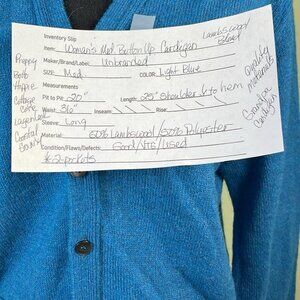 Inventory Slip
Item: Women's Med. Button Up Cardigan
Lambswool
Blend
Maker/Brand/Label: Unbranded
Size: Med COLOR: Light Blue
Measurements
Pit to Pit: 20" Length: 25" Shoulder to hem
Waist: Inseam: Rise:
Sleeve: Long
Material: 50% Lambswool / 50% Polyester
Condition/Flaws/Defects: Good/VTG/Used
*2 pockets
Preppy
Boho
Hippie
Cottage
Core
Layered
Coastal
Quality
materials
Grandpa
Cardigan